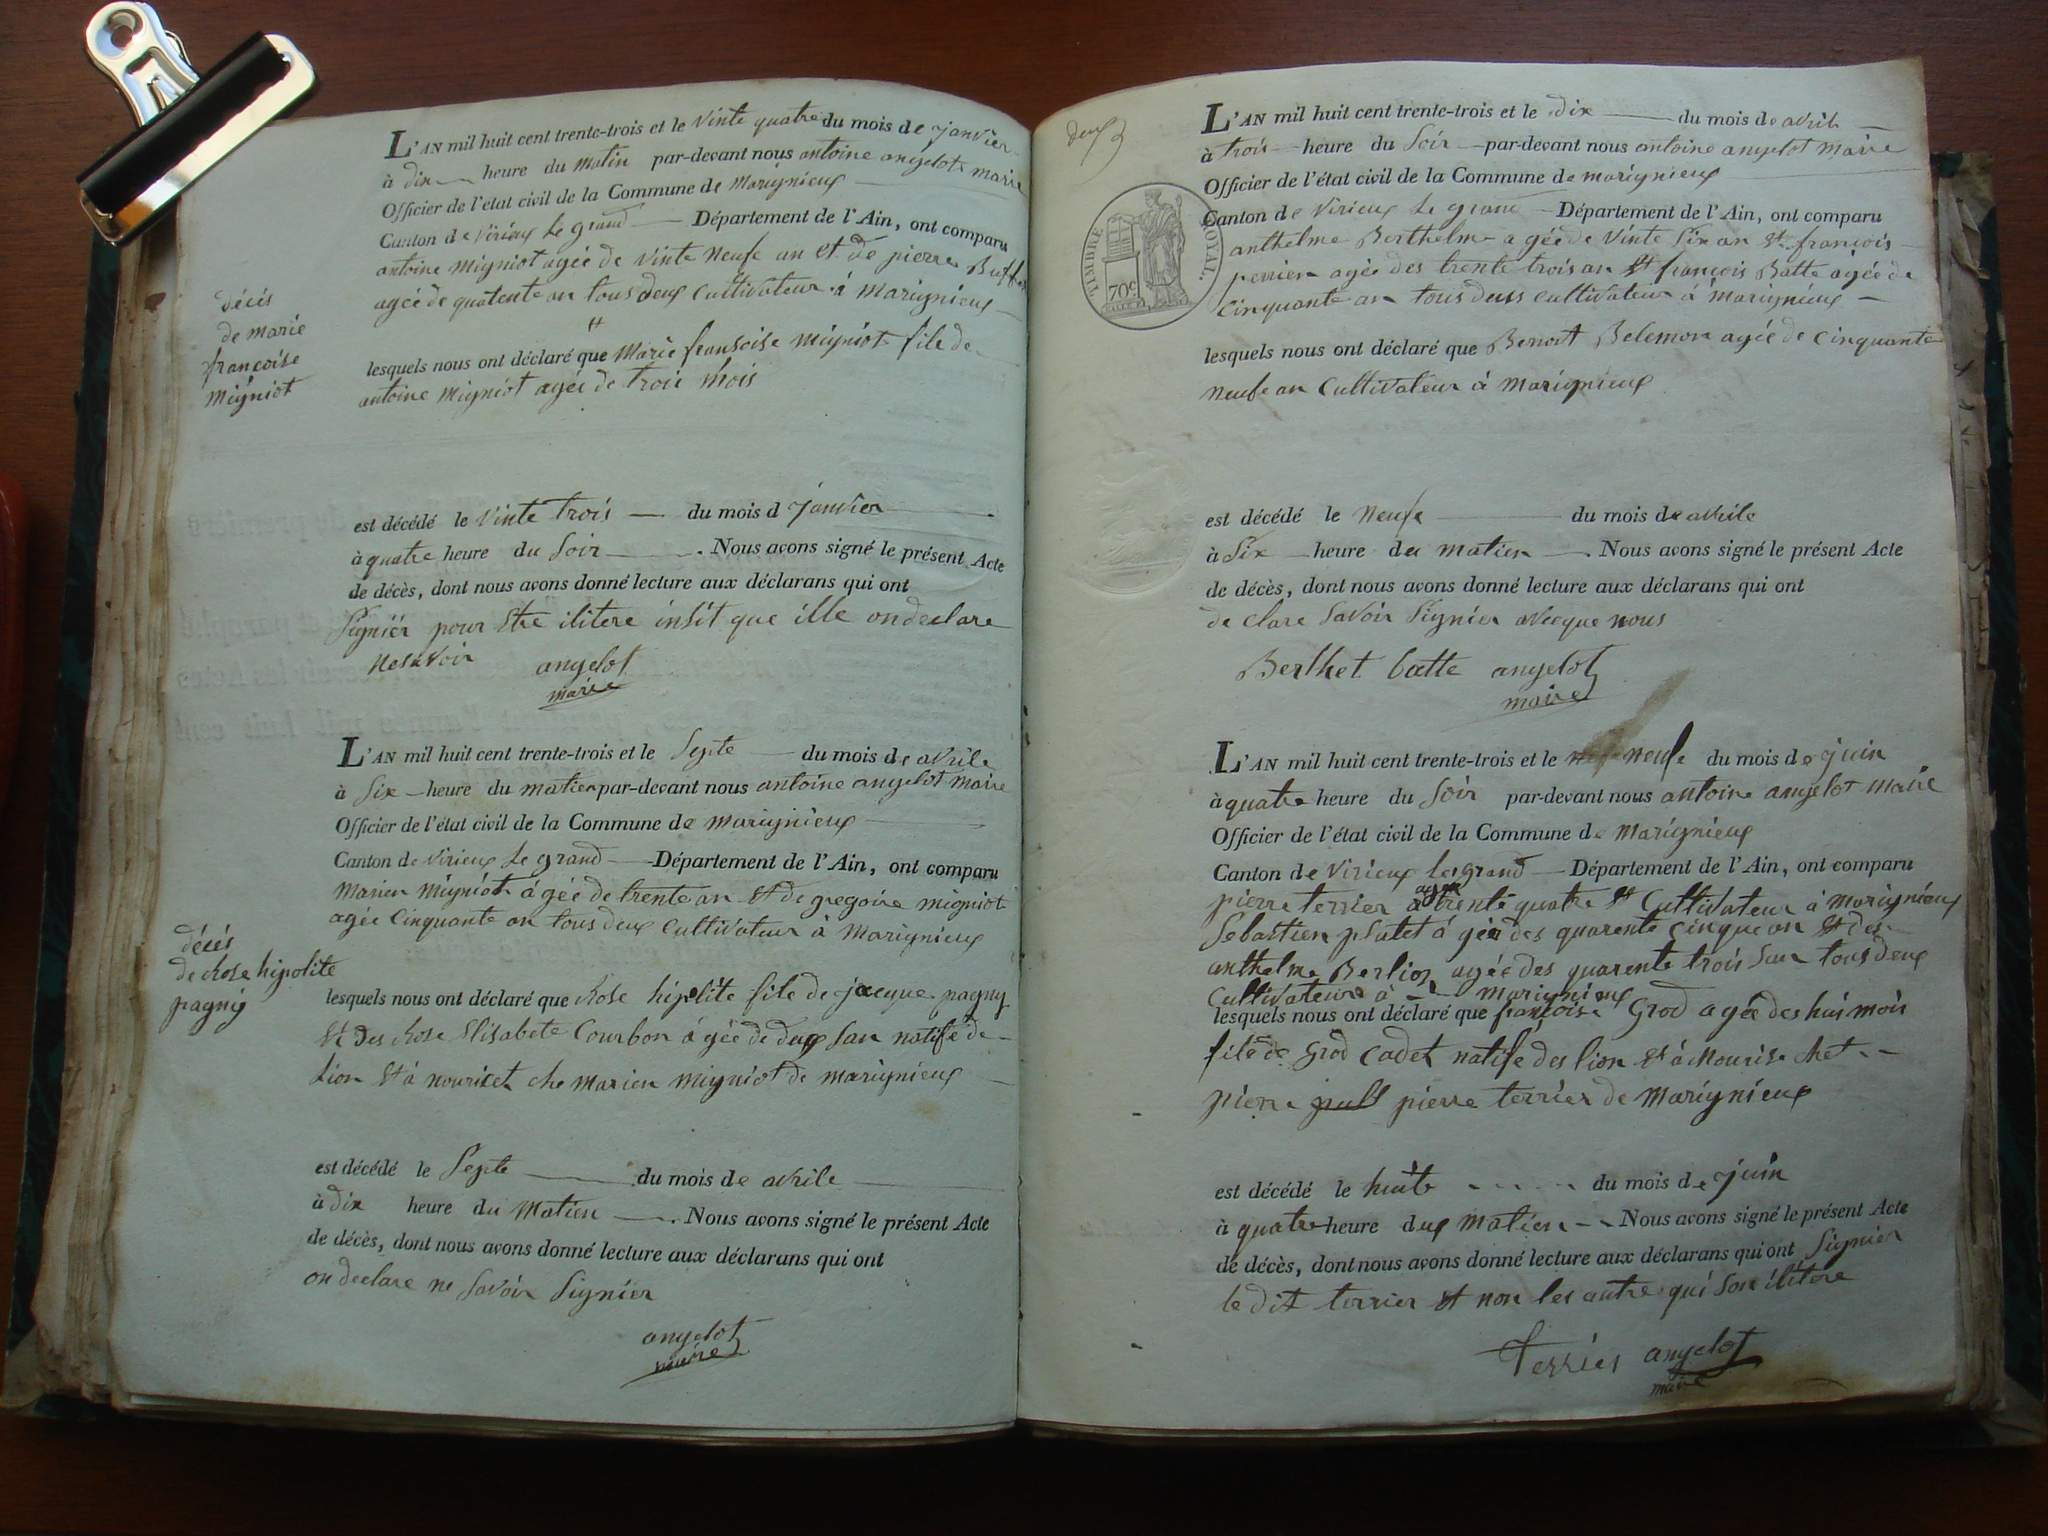 L'AN mil huit cent trente-trois et le vinte quatre du mois de janvier
à dix heure du matin par-devant nous antoine angelot maire
Officier de l'état civil de la Commune de marignieux
Canton de virieux le grand Département de l'Ain, ont comparu
antoine migniot agée de vinte neufe an et de pierre
agée de quatente an tous deux cultivateur à marignieux
lesquels nous ont déclaré que marie fransoise migniot file de
antoine migniot agée de trois mois
décés
de marie
françoise
migniot
est décédé le vinte trois du mois d janvier
à quatre heure du soir . Nous avons signé le présent Acte
de décès, dont nous avons donné lecture aux déclarans qui ont
signier pour etre ilitere insit que ille on declare
nesavoir angelot
maire
L'AN mil huit cent trente-trois et le septe du mois de avrile
à six heure du matien par-devant nous antoine angelot maire
Officier de l'état civil de la Commune de marignieux
Canton de virieux le grand Département de l'Ain, ont comparu
marien migniot ágée de trente an et de gregoire migniot
agée cinquante an tous deux cultivateur à marignieux
décés
de rose hipolite
pagniy
lesquels nous ont déclaré que rose hipolite file de jacque pagny
et des rose elisabete courbon ágée de deux san natife de
lion et à nouricet che marien migniot de marignieux
est décédé le septe du mois de avrile
à dix heure du matien . Nous avons signé le présent Acte
de décès, dont nous avons donné lecture aux déclarans qui ont
on declare ne savoir signier
angelot
maire
deux
TIMBRE ROYAL.
70c
L'AN mil huit cent trente-trois et le dix du mois de avril
à trois heure du soir par-devant nous antoine angelot maire
Officier de l'état civil de la Commune de marignieux
Canton de virieux le grand Département de l'Ain, ont comparu
anthelme Berthelme agée de vinte six an et françois
perrier agée des trente trois an et françois Batte agée de
cinquante an tous deus cultivateur à marignieux
lesquels nous ont déclaré que Benoit Belemon agée de cinquante
neufe an cultivateur à marignieux
est décédé le neufe du mois de avrile
à six heure du matien . Nous avons signé le présent Acte
de décès, dont nous avons donné lecture aux déclarans qui ont
de clare savoir signier avecque nous
Berthet batte angelot
maire
L'AN mil huit cent trente-trois et le neufe du mois de juin
à quatre heure du soir par-devant nous antoine angelot maire
Officier de l'état civil de la Commune de marignieux
Canton de virieux legrand Département de l'Ain, ont comparu
pierre terrier trente quatre et cultivateur à marignieux
sebastien platet á gée des quarente cinque an et des
anthelme Berlioz agée des quarente trois san tous deux
cultivateur à marignieux
lesquels nous ont déclaré que françoise Grod agée des hui mois
file de Grod cadet natife des lion et à nourise chet
pierre pierre terrier de marignieux
est décédé le huite du mois de juin
à quatre heure dux matien Nous avons signé le présent Acte
de décès, dont nous avons donné lecture aux déclarans qui ont signier
le dit terrier et non les autre qui son ilitere
Terrier angelot
maire